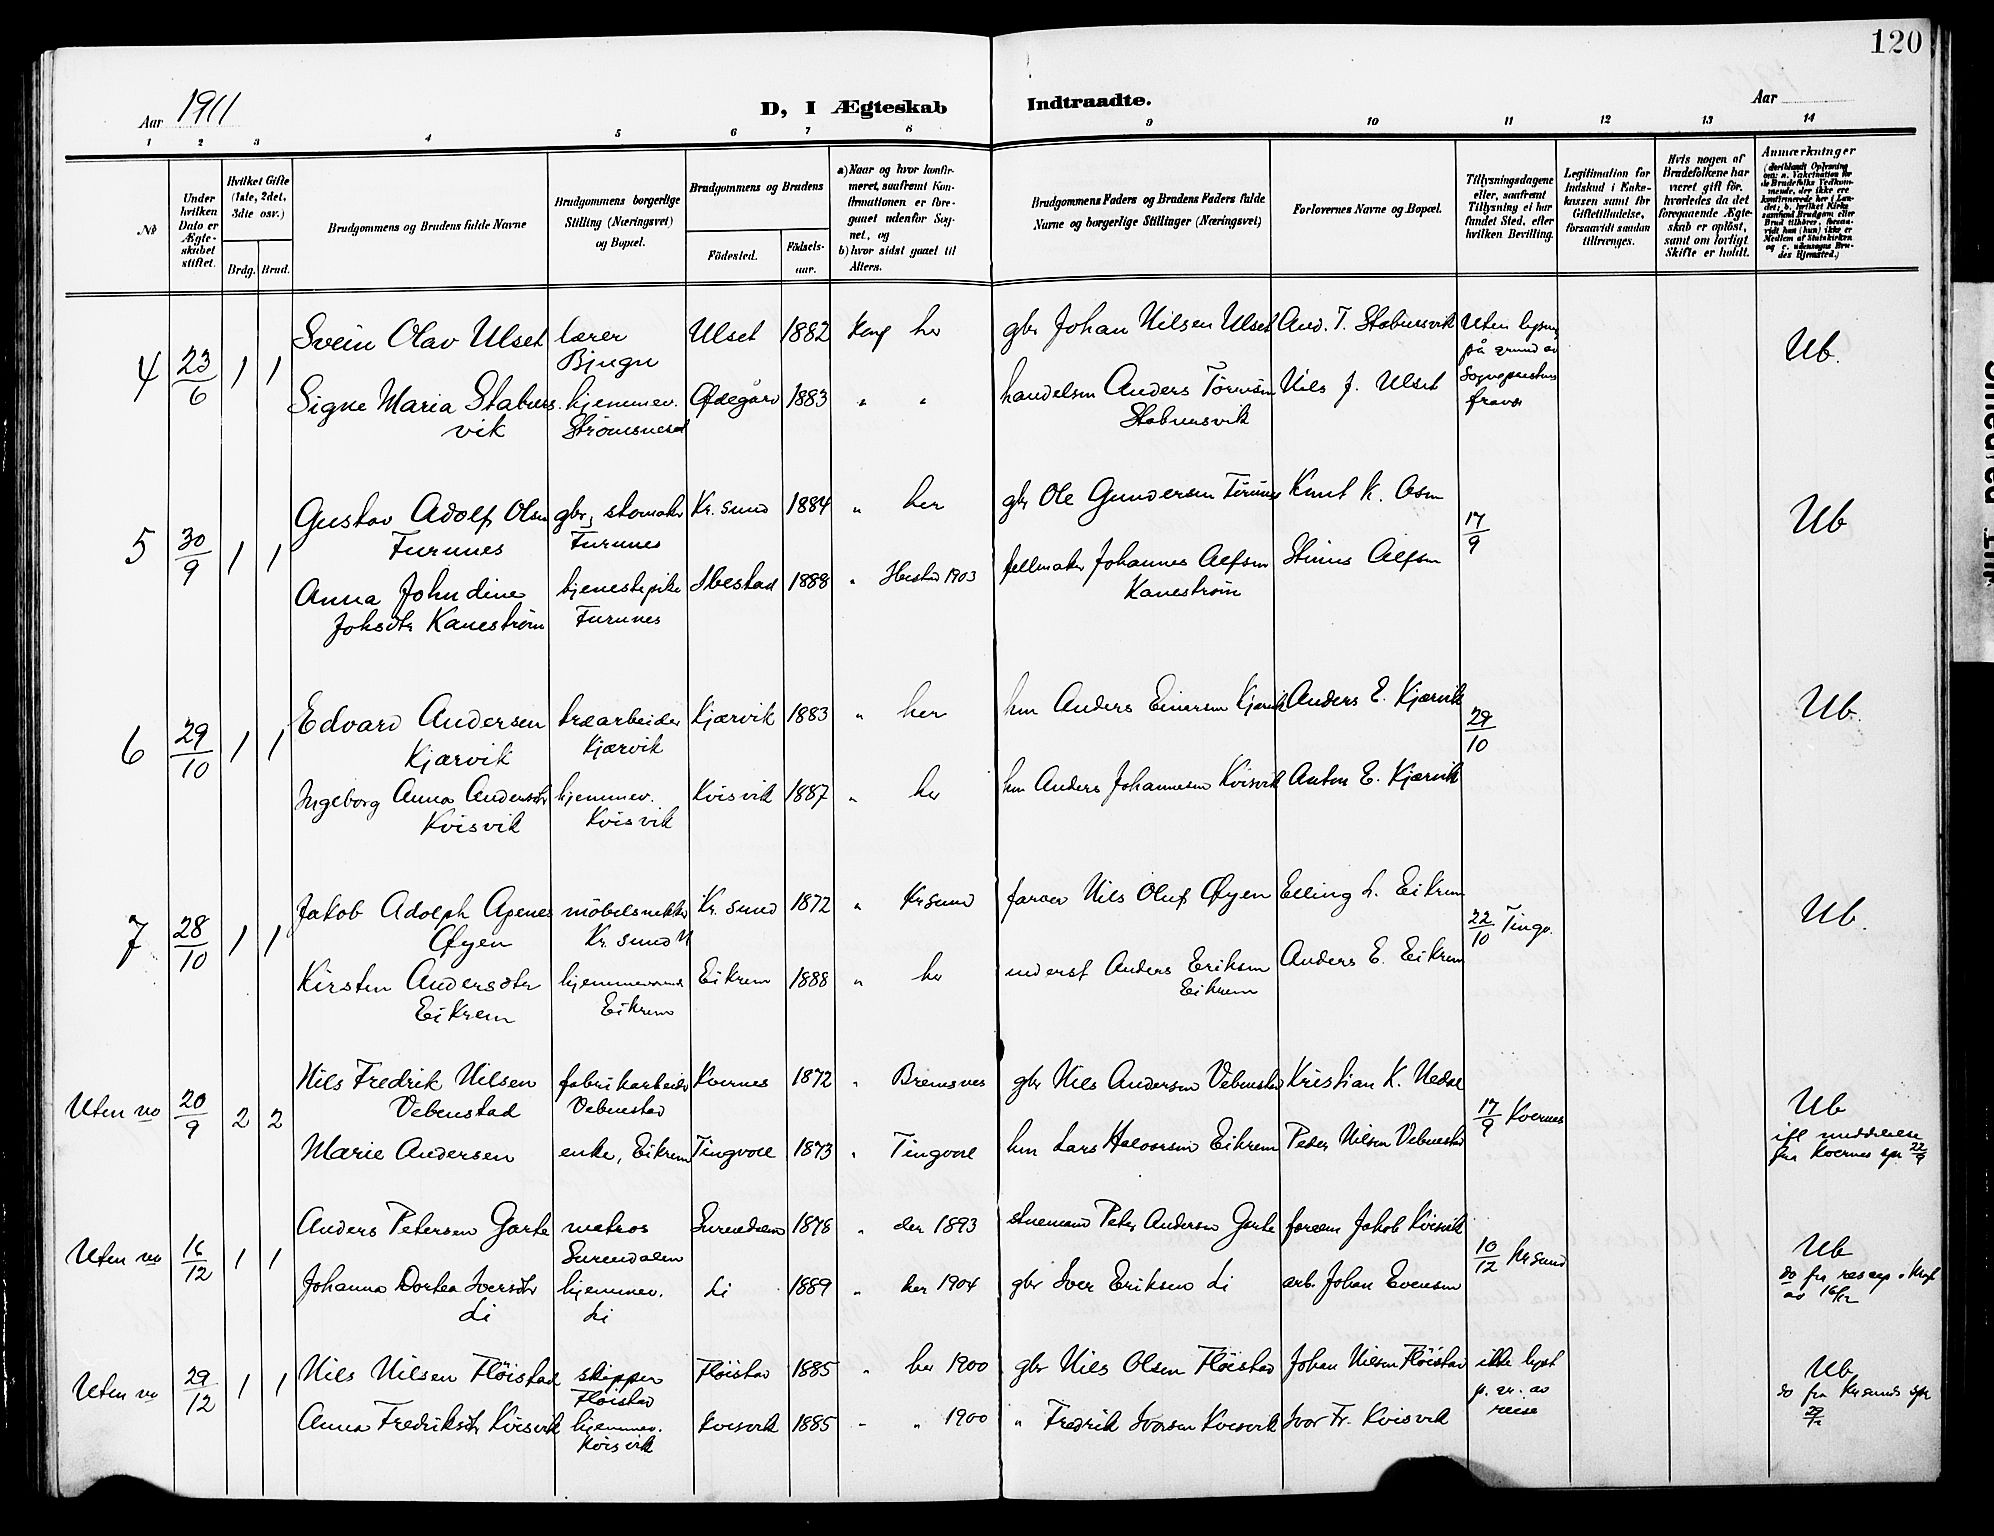 120
Aar 1911
D, I Ægteskab Indtraadte.
Aar
1 2 3 4 5 6 7 8 9 10 11 12 13 14
No
Under hvilken Dato er Ægteskabet stiftet.
Hvilket Gifte (1ste, 2det, 3die osv.)
Brdg. Brud.
Brudgommens og Brudens fulde Navne
Brudgommens borgerlige Stilling (Næringsvei) og Bopæl.
Brudgommens og Brudens
Fødested. Fødselsaar.
a) Naar og hvor konfirmeret, saafremt Konfirmationen er foregaaet udenfor Sognet, og
b) hvor sidst gaaet til Alters.
Brudgommens Faders og Brudens Faders fulde Navne og borgerlige Stillinger (Næringsvei)
Forlovernes Navne og Bopæl.
Tillysningsdagene eller, saafremt Tillysning ei har fundet Sted, efter hvilken Bevilling.
Legitimation for Indskud i Enkekassen samt for Giftetilladelse, forsaavidt saadan tiltrænges.
Hvis nogen af Brudefolkene har været gift før, hvorledes da det foregaaende Ægteskab er opløst, samt om lovligt Skifte er holdt.
Anmærkninger
4 23/6 1 1 Svein Olav Ulset lærer Bjugn Ulset 1882 Konf her gbr Johan Nilsen Ulset And. T. Stabursvik Uten lysning på grund av Sogneprestens fravær Ub.
Signe Maria Stabursvik hjemmev. Strømsneset Ødegård 1883 " " handelsm Anders Stabursvik Nils J. Ulset
5 30/9 1 1 Gustav Adolf Olsen Furunes gbr, skomaker Furunes Kr. sund 1884 " her gbr Ole Gundersen Furunes Knut K. 17/9 Ub
Anna Johndine Johsdtr Kanestrøm tjenestepike Furunes Ibestad 1888 " Ibestad 1903 fellmaker Johannes Kanestrøm
6 29/10 1 1 Edvard Andersen Kjærvik træarbeider Kjærvik Kjærvik 1883 " her hm Anders Einersen Kjærvik Anders E. Kjærvik 29/10 Ub.
Ingeborg Anna Andersdtr Kvisvik hjemmev. Kvisvik Kvisvik 1887 " her hm Anders Johannesen Kvisvik Anton E. Kjærvik
7 28/10 1 1 Jakob Adolph Agenes Øyen møbelsnekker Kr. sund N Kr. sund 1872 " Krsund farver Nils Oluf Øyen Elling L. Eikrem 22/10 Tingv. Ub.
Kirsten Andersdtr Eikrem Eikrem Eikrem 1888 " her inderst Anders Eriksen Eikrem Anders E. Eikrem
Uten no 20/9 2 2 Nils Fredrik Nilsen Vebenstad fabrikarbeider Vebenstad Kvernes 1872 " Bremsnes gbr Nils Andersen Vebenstad Kristian K. Nedal 17/9 Kvernes Ub
Marie Andersen enke, Eikrem Tingvoll 1873 " Tingvoll hm Lars Halvorsen Eikrem Peder Nilsen Vebenstad ifl meddelelse fra Kvernes spr 22/9
Uten no 16/12 1 1 Anders Petersen Garte matros Surendalen Surendalen 1878 " der 1893 styrmand Peter Andersen Garte Jakob Kvisvik 10/12 Krsund Ub
Johanna Dortea Iversdtr Li hjemmev. Li Li 1889 " her 1904 gbr Iver Eriksen Li arb. Johan Evensen do fra
av 16/12
Uten no 29/12 1 1 Nils Nilsen Fløistad skipper Fløistad Fløistad 1885 " her 1900 gbr Nils Olsen Fløistad Johan Nilsen Fløistad ikke lyst p. gr. av reise Ub
Anna Fredriksdtr Kvisvik hjemmev. Kvisvik Kvisvik 1885 " " 1900 " Fredrik Ivarsen Kvisvik Ivar Fr. Kvisvik do fra Krsunds spr